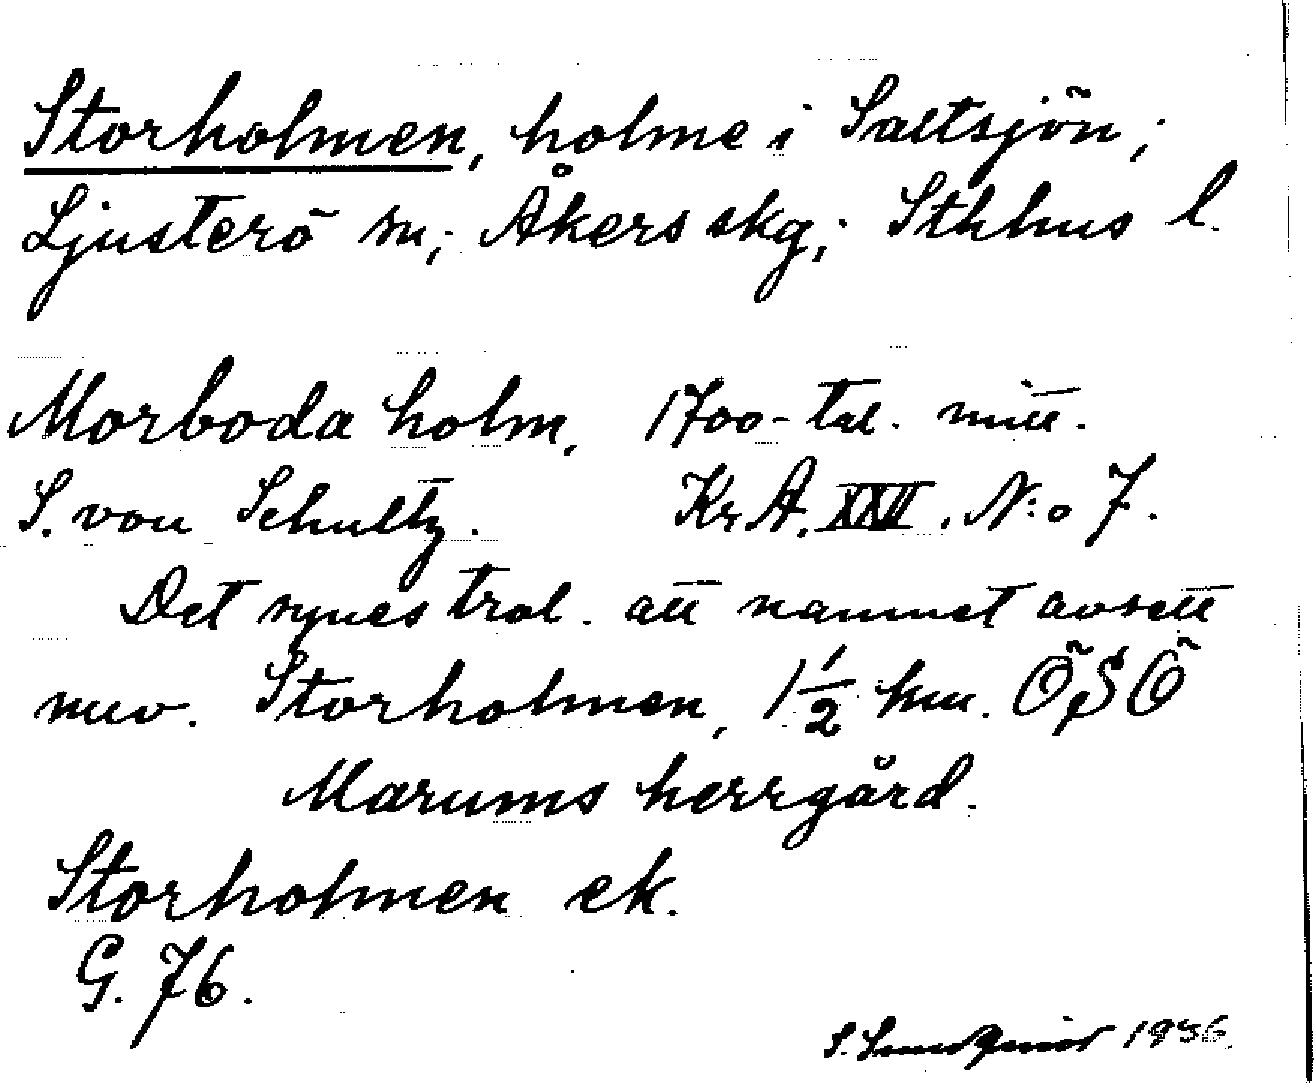 Storholmen, holme i Saltsjön;
Ljusterö sn; Åkers skg; Sthlms l.
Morboda holm, 1700-tal. mitt.
S. von Schultz. Kr. A. XXVI. N:o 7.
Det synes trol. att namnet avsett
nuv. Storholmen, 1 1/2 km. ÖSÖ
Marums herrgård.
Storholmen ek.
G. 76.
S. 1936.